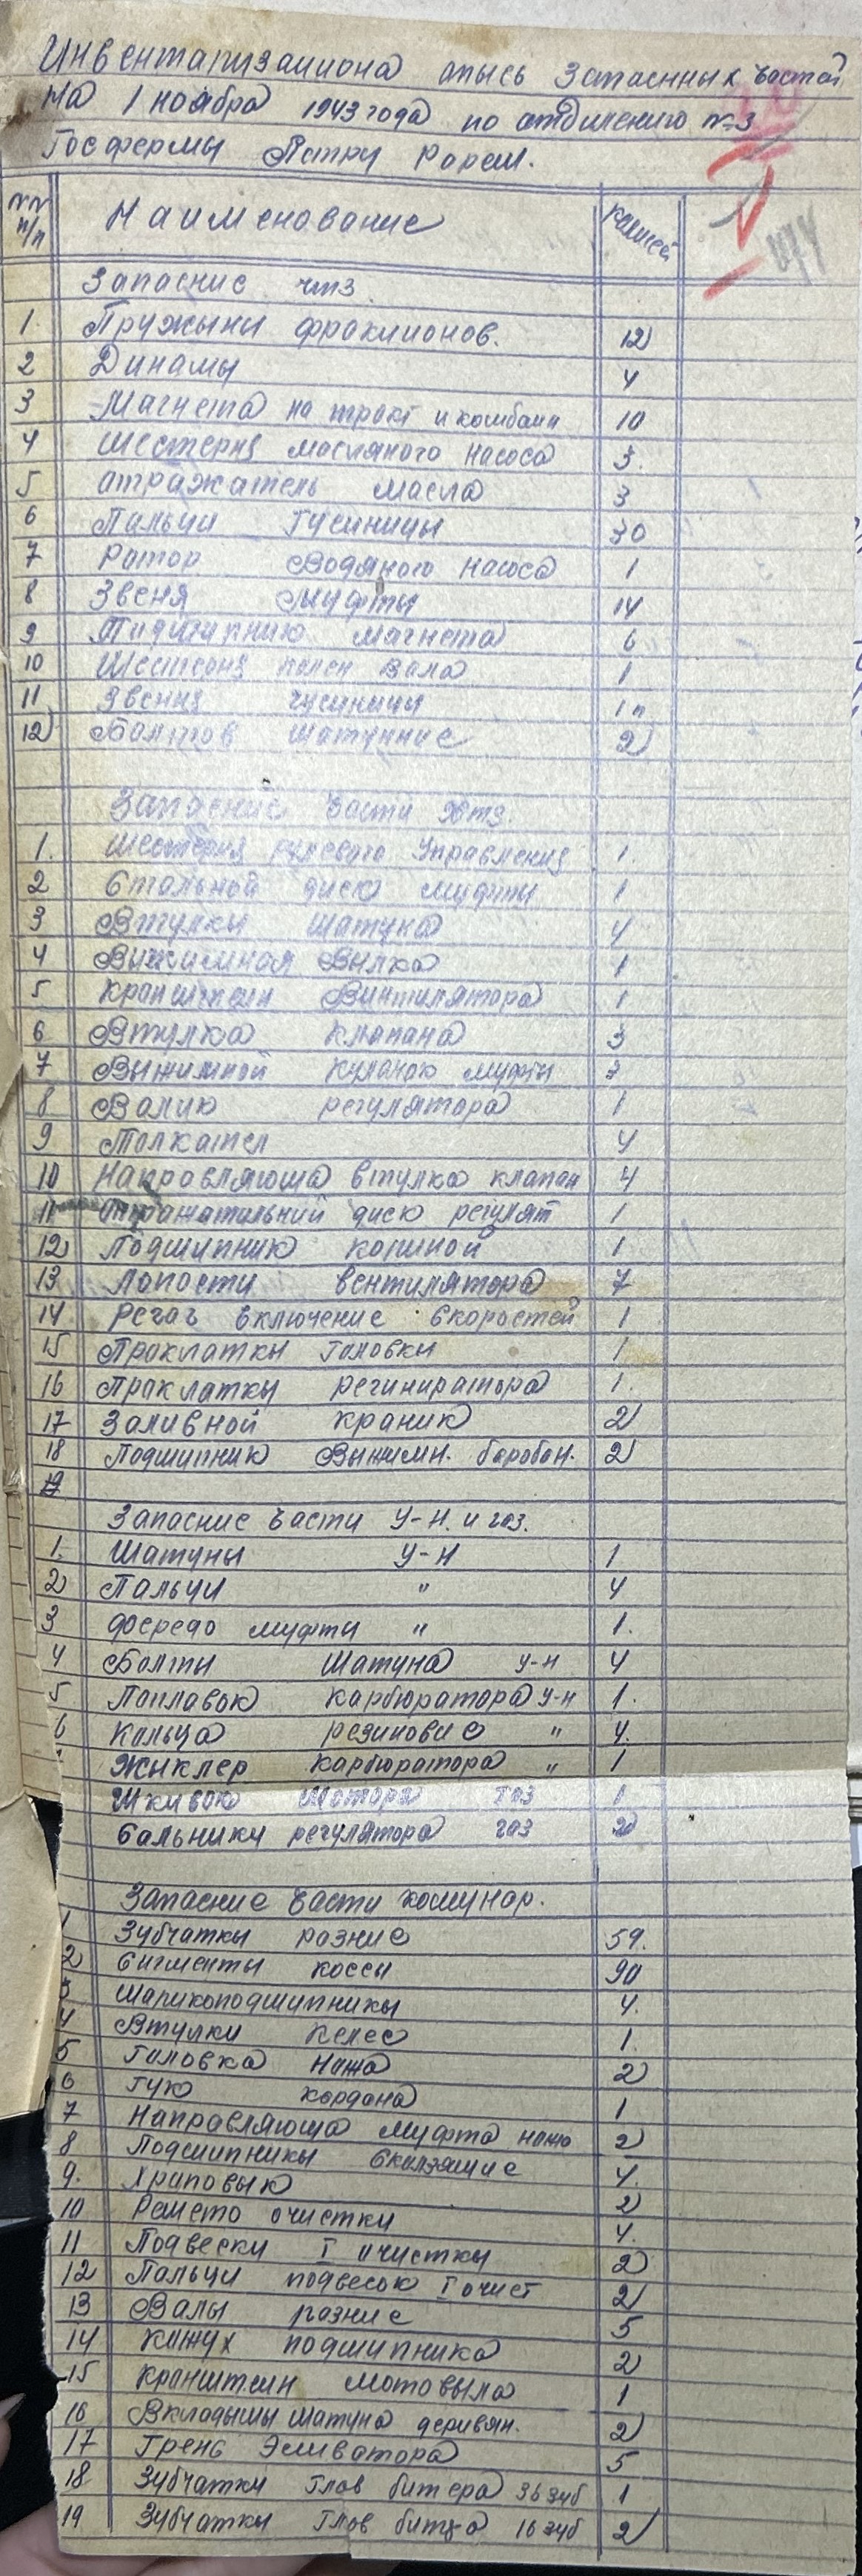 Инвентаризациона опысь Запаснных Частей
На 1 ноября 1943 года по отдилению №3
Госфермы Петру Рореш.
№№ п/п Наименование
474
Запасние чтз
1. Пружыны фракционов. 12
2 Динамы 4
3 Магнета на тракт и комбаин 10
4 Шестерня масляного насоса 3.
5 атражатель масла 3
6 Пальци Гусиницы 30
7 Ратор Водяного насоса 1
8 Звеня Муфты 14
9 Подшипнию магнета 6
10 Шестеоня вала 1
11 Звения гусиници 1
12 Болтов шатунние 2
Запасние части Хтз.
1. Шестерня рулевого Управления 1.
2 Стальной диск муфты 1
3 Втулкы шатуна 4
4 Вижимная Вылка 1
5 Кранштеин Винтилятора 1
6 Втулка клапана 3
7 Выжимной кулачок муфты 3
8 Валик регулятора 1
9 Толкател 4
10 Направляюща втулка клапан 4
11 атражательний диск регулят 1
12 Подшипник кориной 1
13 Лопости вентилятора 7
14 Регаг включение скоростей 1
15 Проклаткы Головкы 1
16 Проклаткы региниратора 1.
17 Заливной краник 2
18 Подшипник Выжимн. боробон. 2
19
Запасние части У-Н. и газ.
1. Шатуны У-Н 1
2 Пальци " 4
3 феродо муфты " 1.
4 Болты Шатуна У-Н 4
5 Поплавок Карбюратора У-Н 1.
6 Кольца резиновие " 4.
Жыклер Карбюратора " 1
Шкивок Мотора газ 1
Сальники регулятора газ 2
Запасние части комунар.
1 Зубчаткы разние 59.
2 Сигменты коссы 90
3 Шарикоподшипникы 4.
4 Втулки Келес 1.
5 Головка Ножа 2
6 Гук кордана 1
7 Направляюща муфта ножо 2
8 Подшипникы Скользящие 4.
9. Храповык 2
10 Решето очистки 4.
11 Подвески I очисткы 2
12 Пальци подвесок I очист 2
13 Валы разние 5
14 Кажух подшипника 2
15 Кранштеин мотовыла 1
16 Вкладышы шатуна деривян. 2
17 Грень Эливатора 5
18 Зубчатки Глов битера 36 зуб 1
19 Зубчаткы Глов битра 16 зуб 2